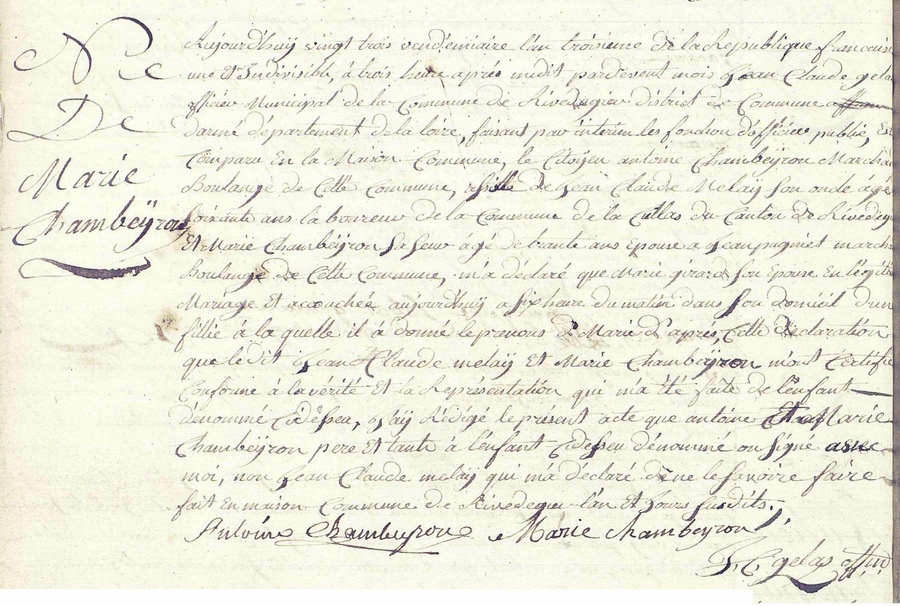 Née
De
Marie
Chambeÿron
Aujourdhuÿ vingt trois vendemiaire l'an troisieme de la Republique francaise
une Et Indivisible, à trois heure aprés midit pardevent mois Jean Claude gela
officier Municipal de la Commune de Rivedegier district de Commune
darmé département de la loire, faisant par interim les fonction d'officier publié, Est
Comparu En la Maison Commune, le Citoÿen antoine Chambeÿron Marchan
Boulangé de Cette Commune, de Jean Claude Melaÿ son oncle âgé
soixante ans la boureur de la Commune de la Cullas du Canton de Rivedegie
Et Marie Chambeÿron sa seur âgé de trante ans Epouse a Jean pigniet march
Boulangé de Cette Commune, m'a déclaré que Marie girard son Epouse En légiti
Mariage Et accoachée aujourdhuÿ a six heure du matin dans son domicil d'un
fillie à la quelle il à donné le prenous de Marie d'aprés Cette declaration
que lédit Jean Claude melaÿ Et Marie Chambeÿron m'ont Certifié
Conforme à la vérité Et la Représentation qui m'a été faite de l'enfant
dénommé Cidéseu, Jaÿ Rédigé le présent acte que antoine Et Marie
Chambeÿron pere Et tante à l'enfant Cidesseu dénommé on signé avec
moi, non Jean Claude melaÿ qui m'a déclaré de ne le savoire faire
fait En maison Commune de Rivedegier l'an Et Jours susdits.
Antoine Chambeyron Marie chambeyron
J. C. gelas offier